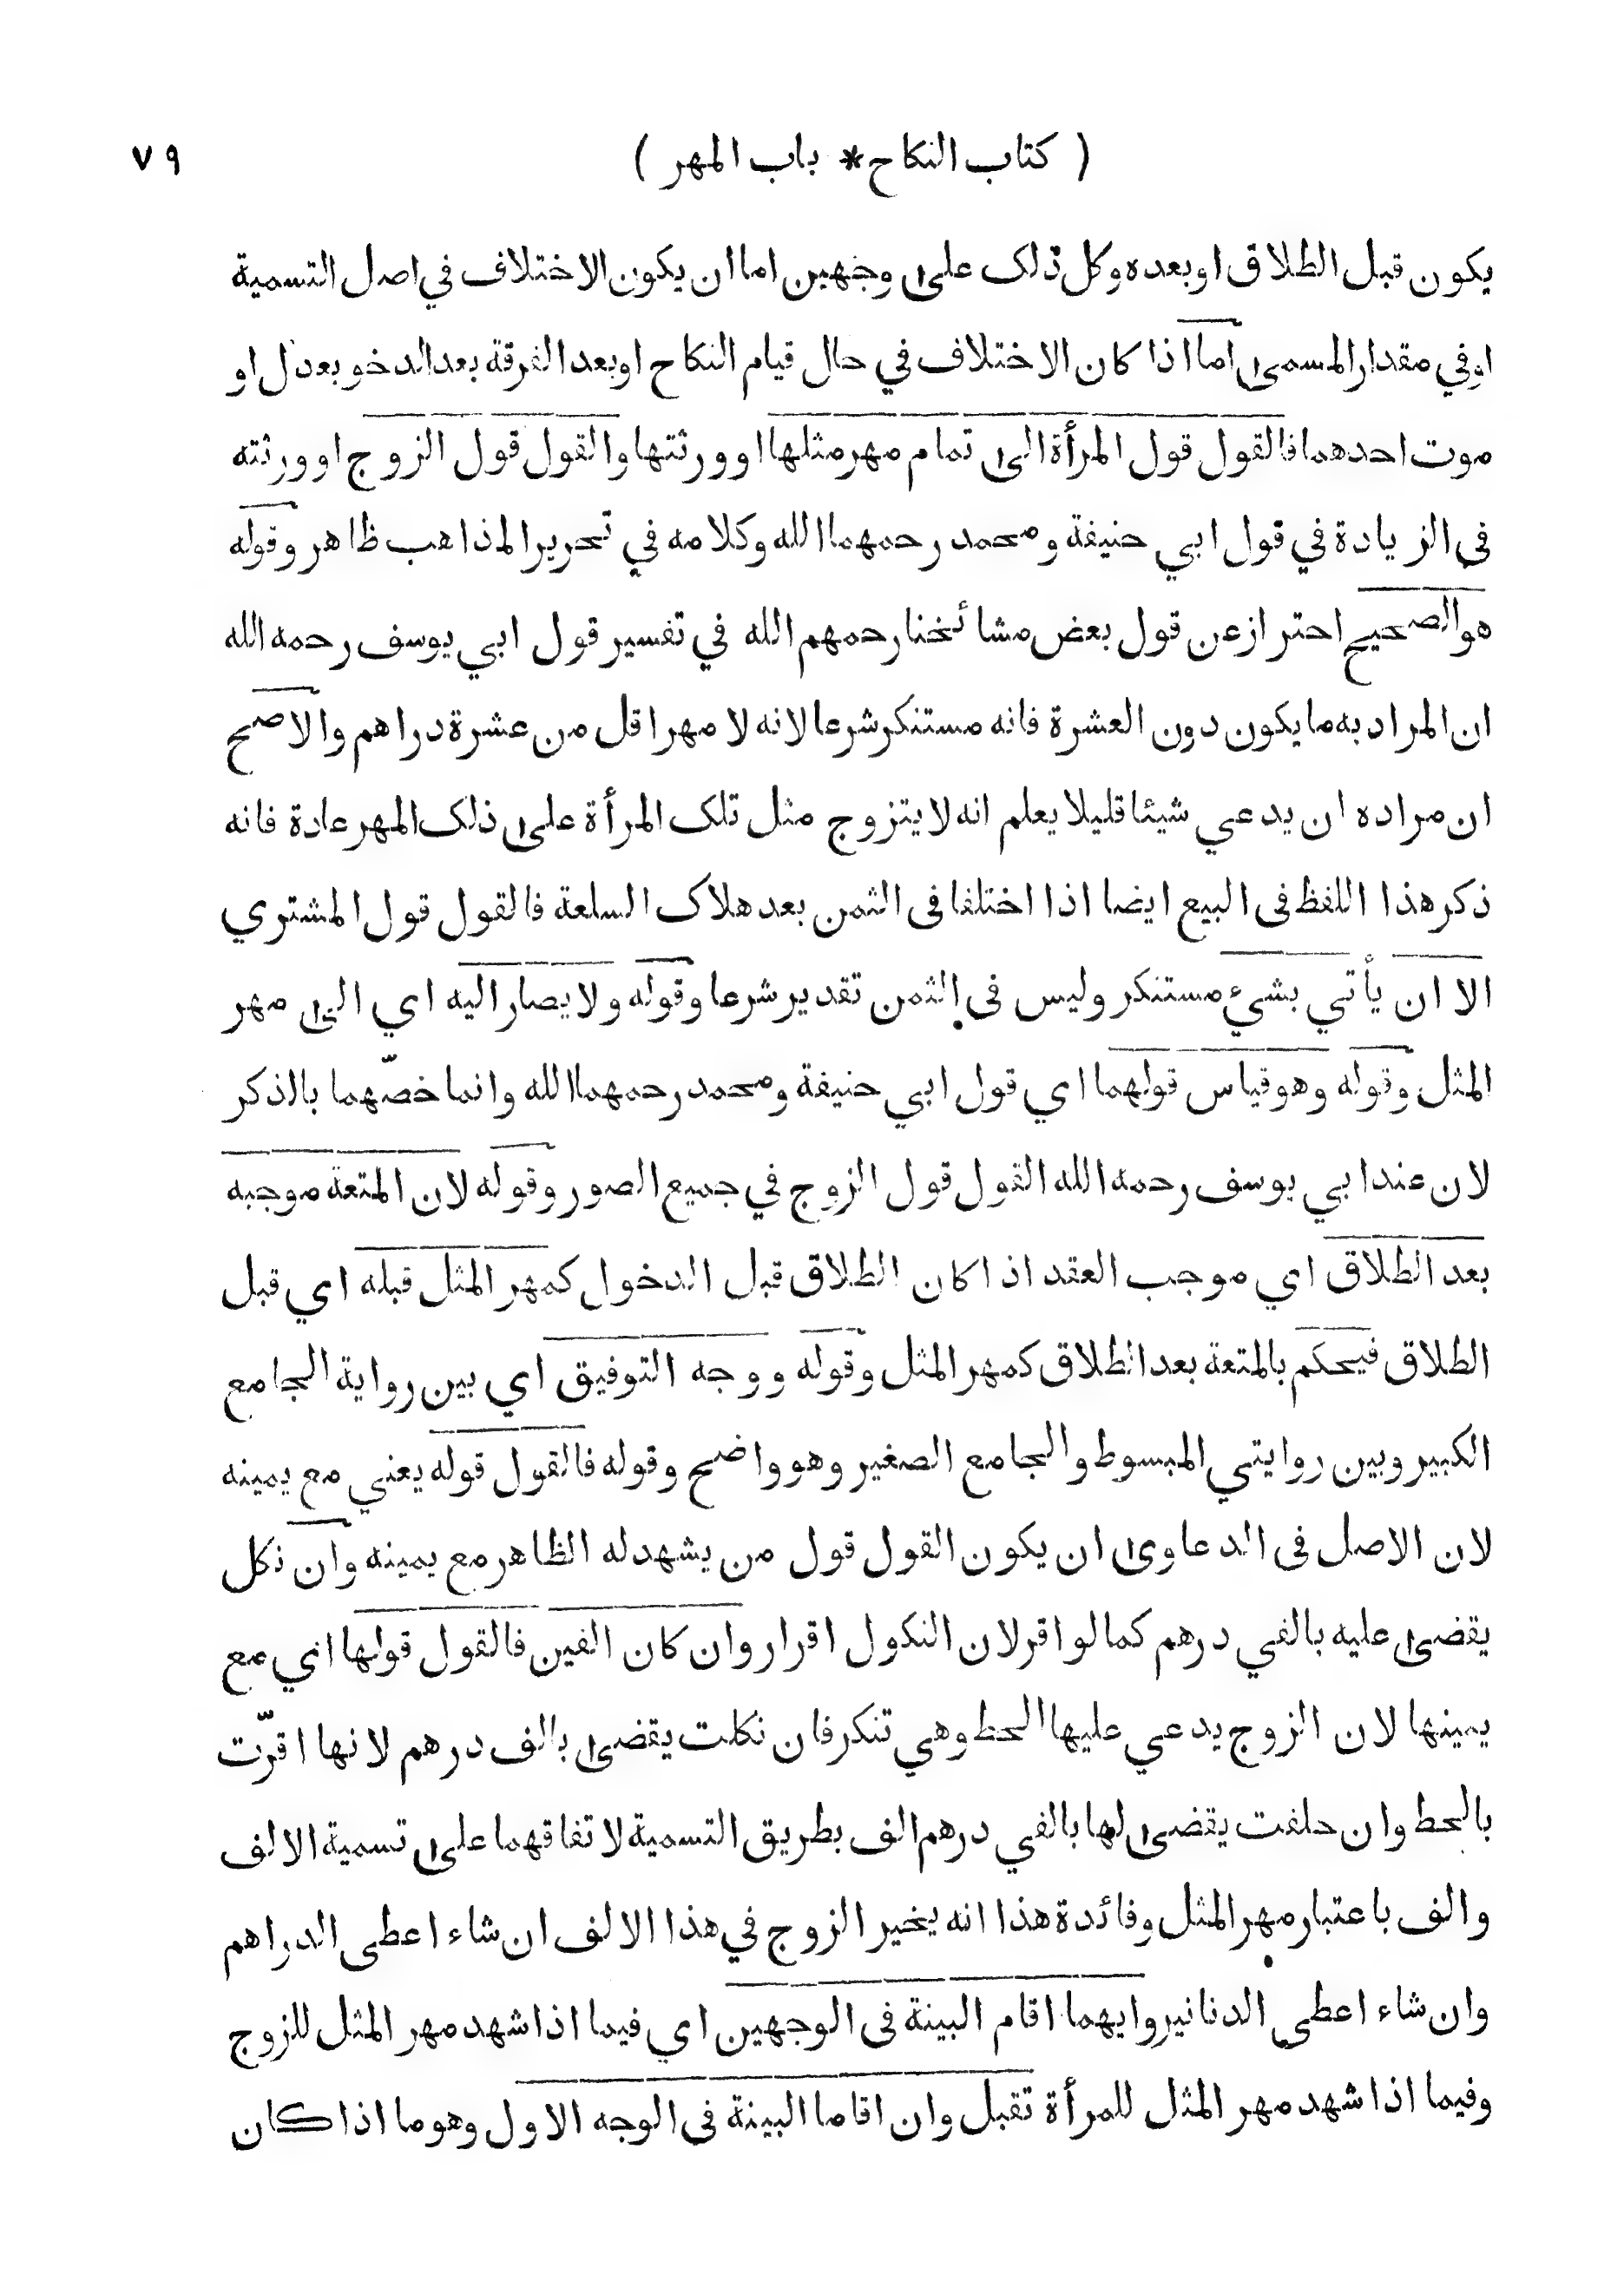 ( كتاب النكاح * باب المهر ) ٧٩
يكون قبل الطلاق او بعده وكل ذلك على وجهين اما ان يكون الاختلاف في اصل التسمية
او في مقدار المسمى اما اذا كان الاختلاف في حال قيام النكاح او بعد الفرقة بعد الدخو بعدل او
موت احدهما فالقول قول المرأة الى تمام مهر مثلها او ورثتها والقول قول الزوج او ورثته
في الزيادة في قول ابي حنيفة ومحمد رحمهما الله وكلامه في تحرير المذاهب ظاهر وقوله
هو الصحيح احتراز عن قول بعض مشائخنا رحمهم الله في تفسير قول ابي يوسف رحمه الله
ان المراد به ما يكون دون العشرة فانه مستنكر شرعا لانه لا مهر اقل من عشرة دراهم والاصح
ان مراده ان يدعي شيئا قليلا يعلم انه لا يتزوج مثل تلك المرأة على ذلك المهر عادة فانه
ذكر هذا اللفظ في البيع ايضا اذا اختلفا في الثمن بعد هلاك السلعة فالقول قول المشتري
الا ان يأتي بشيء مستنكر وليس في الثمن تقدير شرعا وقوله ولا يصار اليه اي الى مهر
المثل وقوله وهو قياس قولهما اي قول ابي حنيفة ومحمد رحمهما الله وانما خصّهما بالذكر
لان عند ابي يوسف رحمه الله القول قول الزوج في جميع الصور وقوله لان المتعة موجبه
بعد الطلاق اي موجب العقد اذا كان الطلاق قبل الدخول كمهر المثل قبله اي قبل
الطلاق فيحكم بالمتعة بعد الطلاق كمهر المثل وقوله ووجه التوفيق اي بين رواية الجامع
الكبير وبين روايتي المبسوط والجامع الصغير وهو واضح وقوله فالقول قوله يعني مع يمينه
لان الاصل في الدعاوى ان يكون القول قول من يشهد له الظاهر مع يمينه وان نكل
يقضى عليه بالفي درهم كما لو اقر لان النكول اقرار وان كان الفين فالقول قولها اي مع
يمينها لان الزوج يدعي عليها الحط وهي تنكر فان نكلت يقضى بالف درهم لانها اقرّت
بالحط وان حلفت يقضى لها بالفي درهم الف بطريق التسمية لاتفاقهما على تسمية الالف
والف باعتبار مهر المثل وفائدة هذا انه يخير الزوج في هذا الالف ان شاء اعطى الدراهم
وان شاء اعطى الدنانير وايهما اقام البينة في الوجهين اي فيما اذا شهد مهر المثل للزوج
وفيما اذا شهد مهر المثل للمرأة تقبل وان اقاما البينة في الوجه الاول وهو ما اذا كان